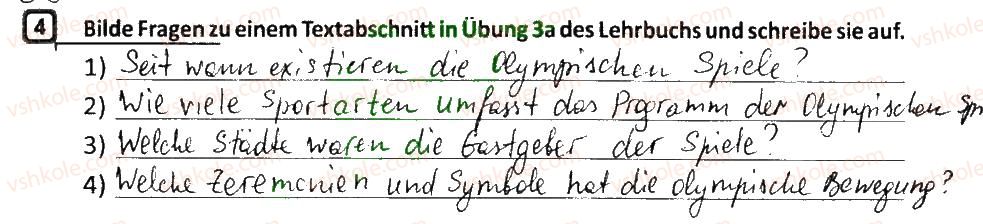 4 Bilde Fragen zu einem Textabschnitt in Übung 3a des Lehrbuchs und schreibe sie auf.
1) Seit wann existieren die Olympischen Spiele?
2) Wie viele Sportarten umfasst das Programm der Olympischen Sp
3) Welche Städte waren die Gastgeber der Spiele?
4) Welche Zeremonien und Symbole hat die olympische Bewegung?